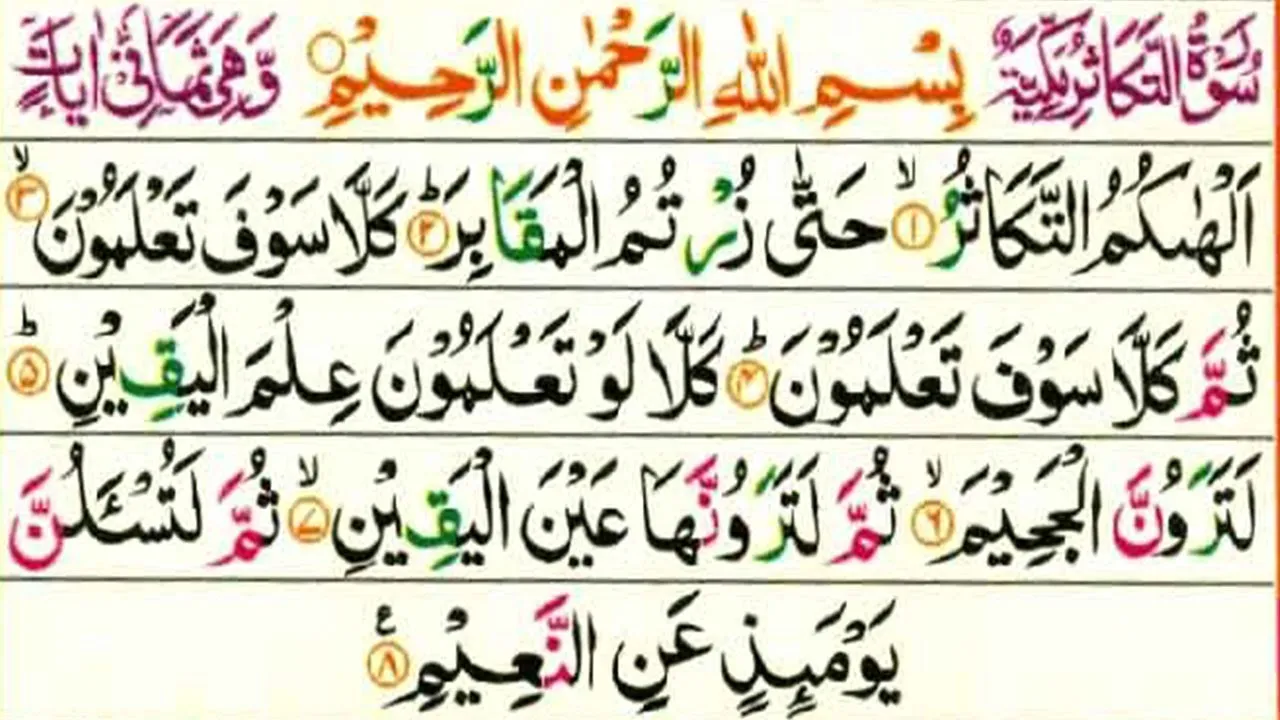 سُوْرَةُ التَّكَاثُرِ مَكِّيَّةٌ بِسْمِ اللهِ الرَّحْمٰنِ الرَّحِيْمِ ○ وَّهِىَ ثَمَانِىْ اٰيَاتٍ
اَلْهٰىكُمُ التَّكَاثُرُ ۙ﴿۱﴾ حَتّٰى زُرْتُمُ الْمَقَابِرَ ؕ﴿۲﴾ كَلَّا سَوْفَ تَعْلَمُوْنَ ۙ﴿۳﴾
ثُمَّ كَلَّا سَوْفَ تَعْلَمُوْنَ ؕ﴿۴﴾ كَلَّا لَوْ تَعْلَمُوْنَ عِلْمَ الْيَقِيْنِ ؕ﴿۵﴾
لَتَرَوُنَّ الْجَحِيْمَ ۙ﴿۶﴾ ثُمَّ لَتَرَوُنَّهَا عَيْنَ الْيَقِيْنِ ۙ﴿۷﴾ ثُمَّ لَتُسْـَٔلُنَّ
يَوْمَىِٕذٍ عَنِ النَّعِيْمِ ﴿۸﴾ ع